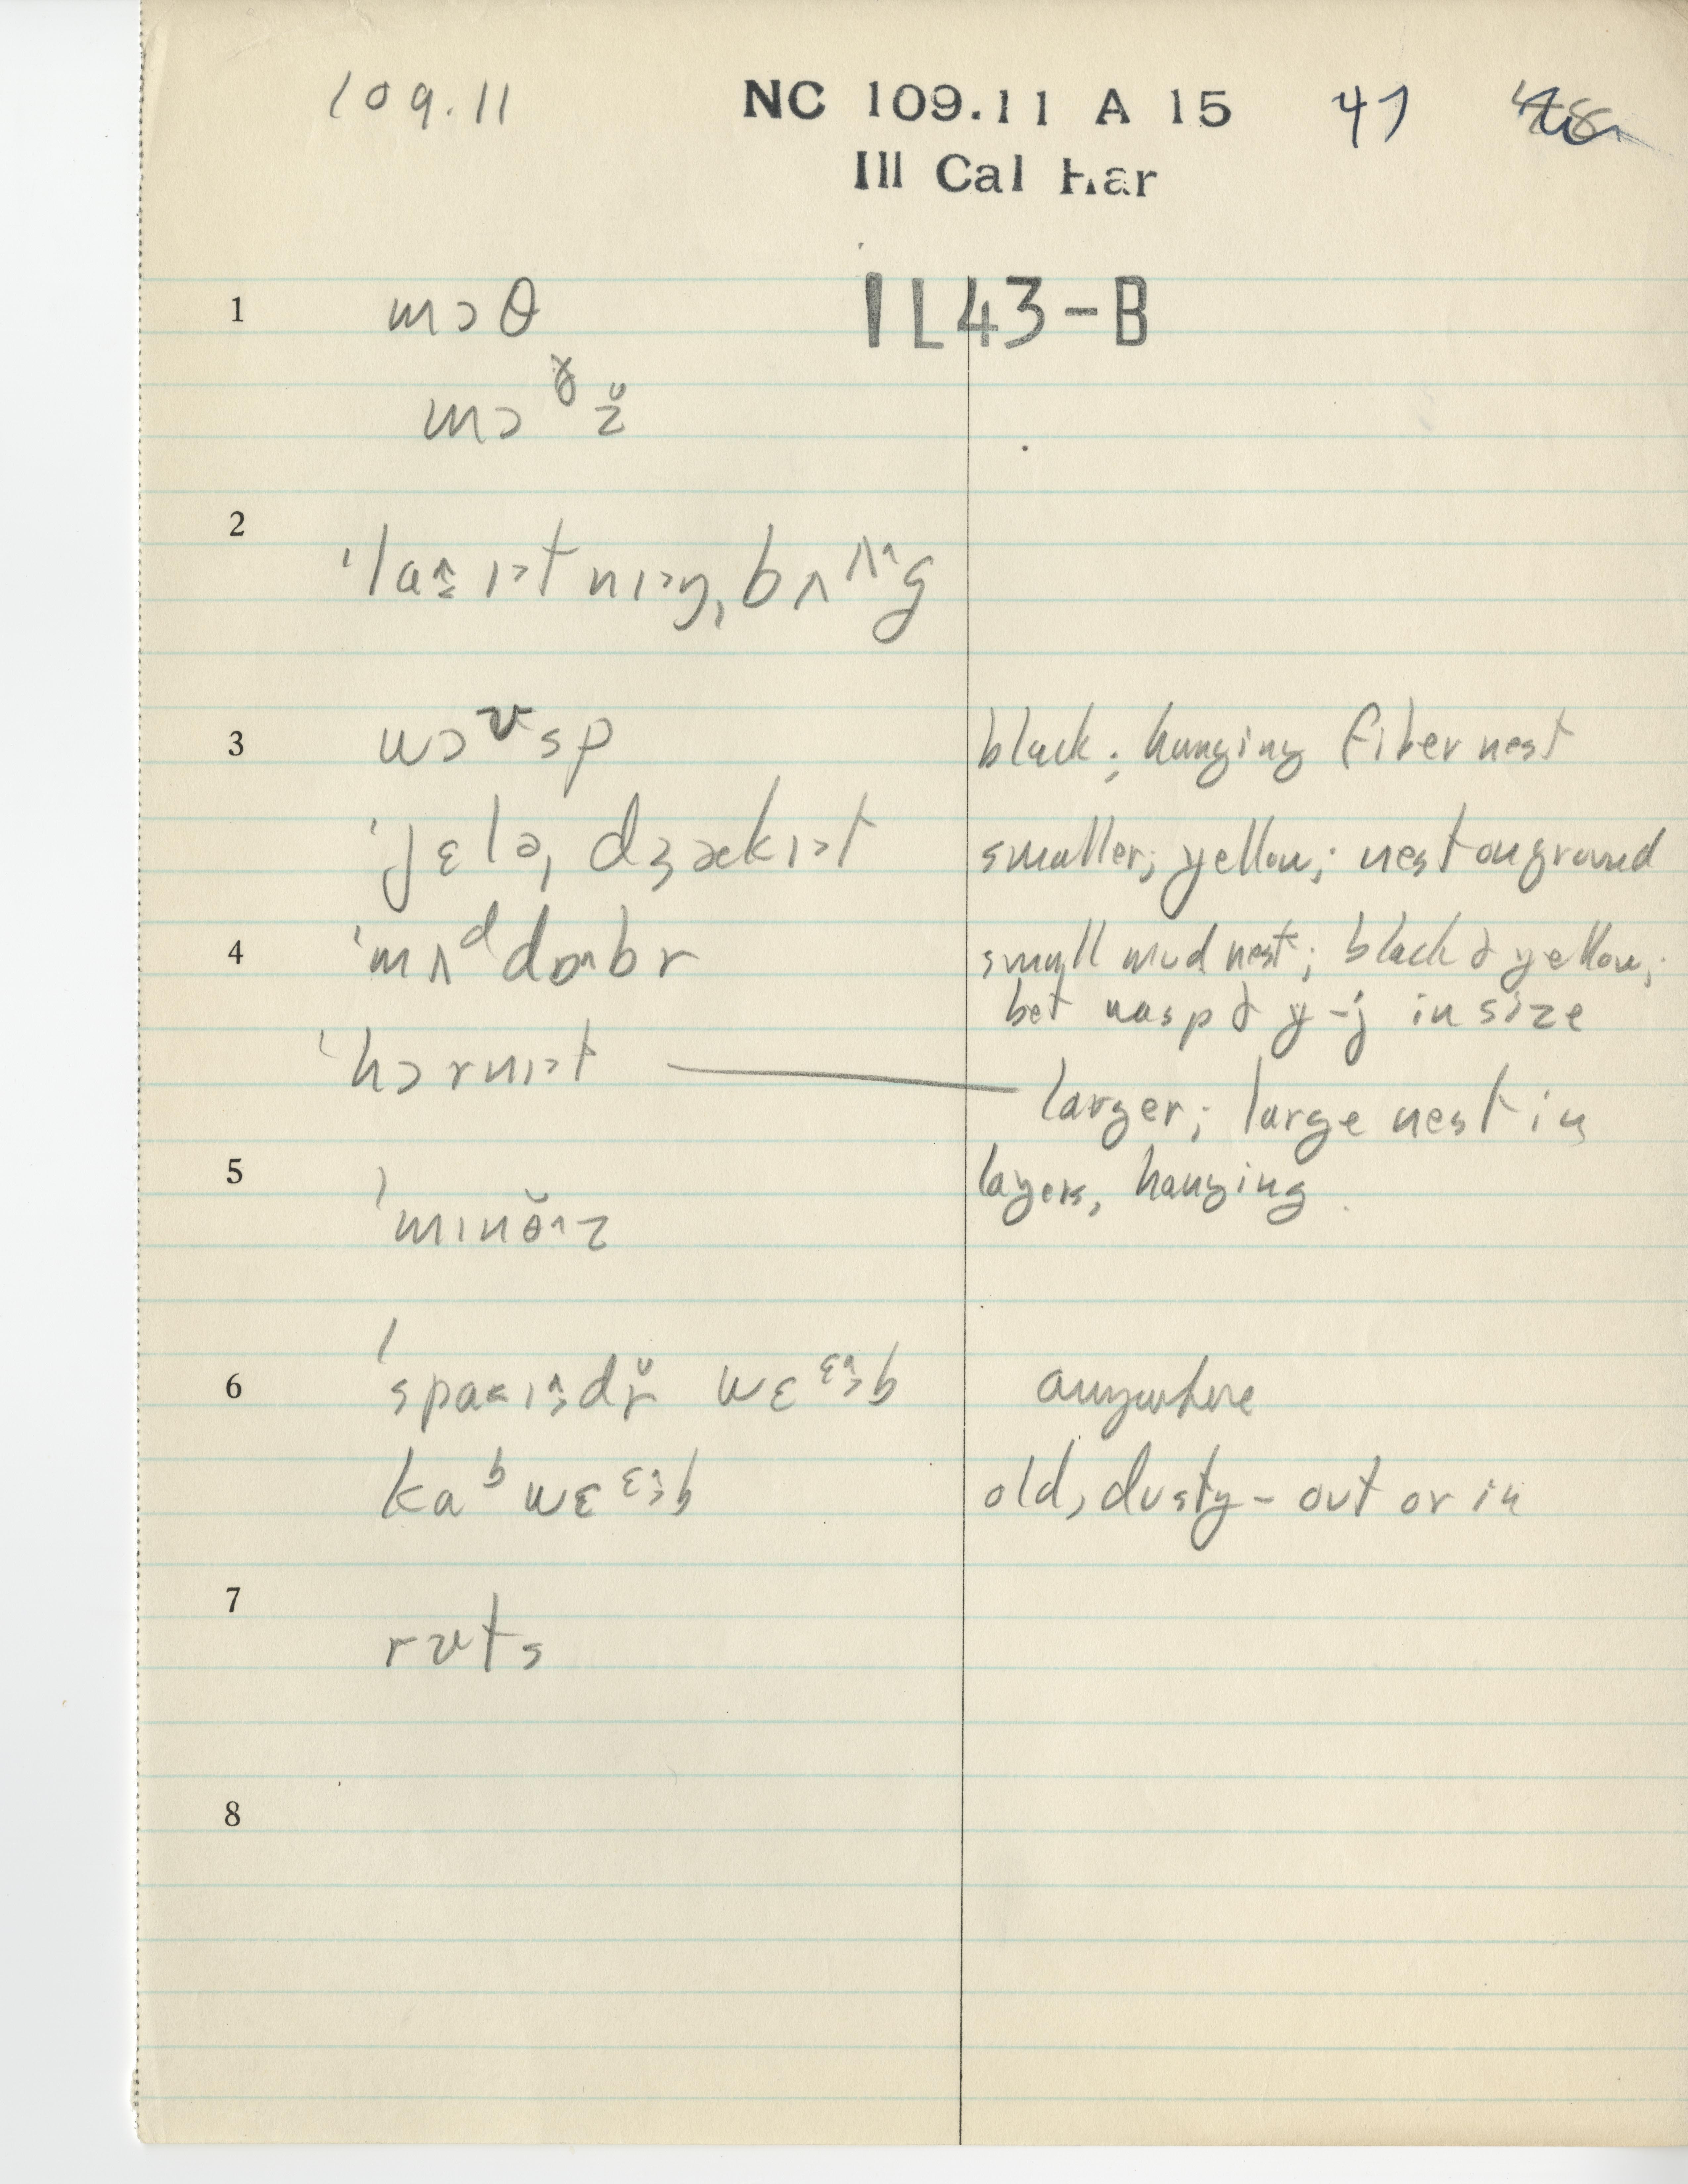 109.11 NC 109.11 A 15 47
Ill Cal Har
1 mɔθ IL43-B
mɔᵞz̆
2
ˈlaɪt nɪŋ, bʌg
3 wɔᶹsp black; hanging fiber nest
ˈjɛlə, dʒækɪɔt smaller; yellow; nest on ground
4 ˈmʌᵈdɒbr small mud nest; black & yellow;
bet wasp & y-j in size
ˈhɔrnɪɔt larger; large nest in
5 layers, hanging
ˈmɪnəz
6 ˈspaɪdr̆ wɛᵋb anywhere
kaᵇwɛᵋb old, dusty - out or in
7
rʊts
8